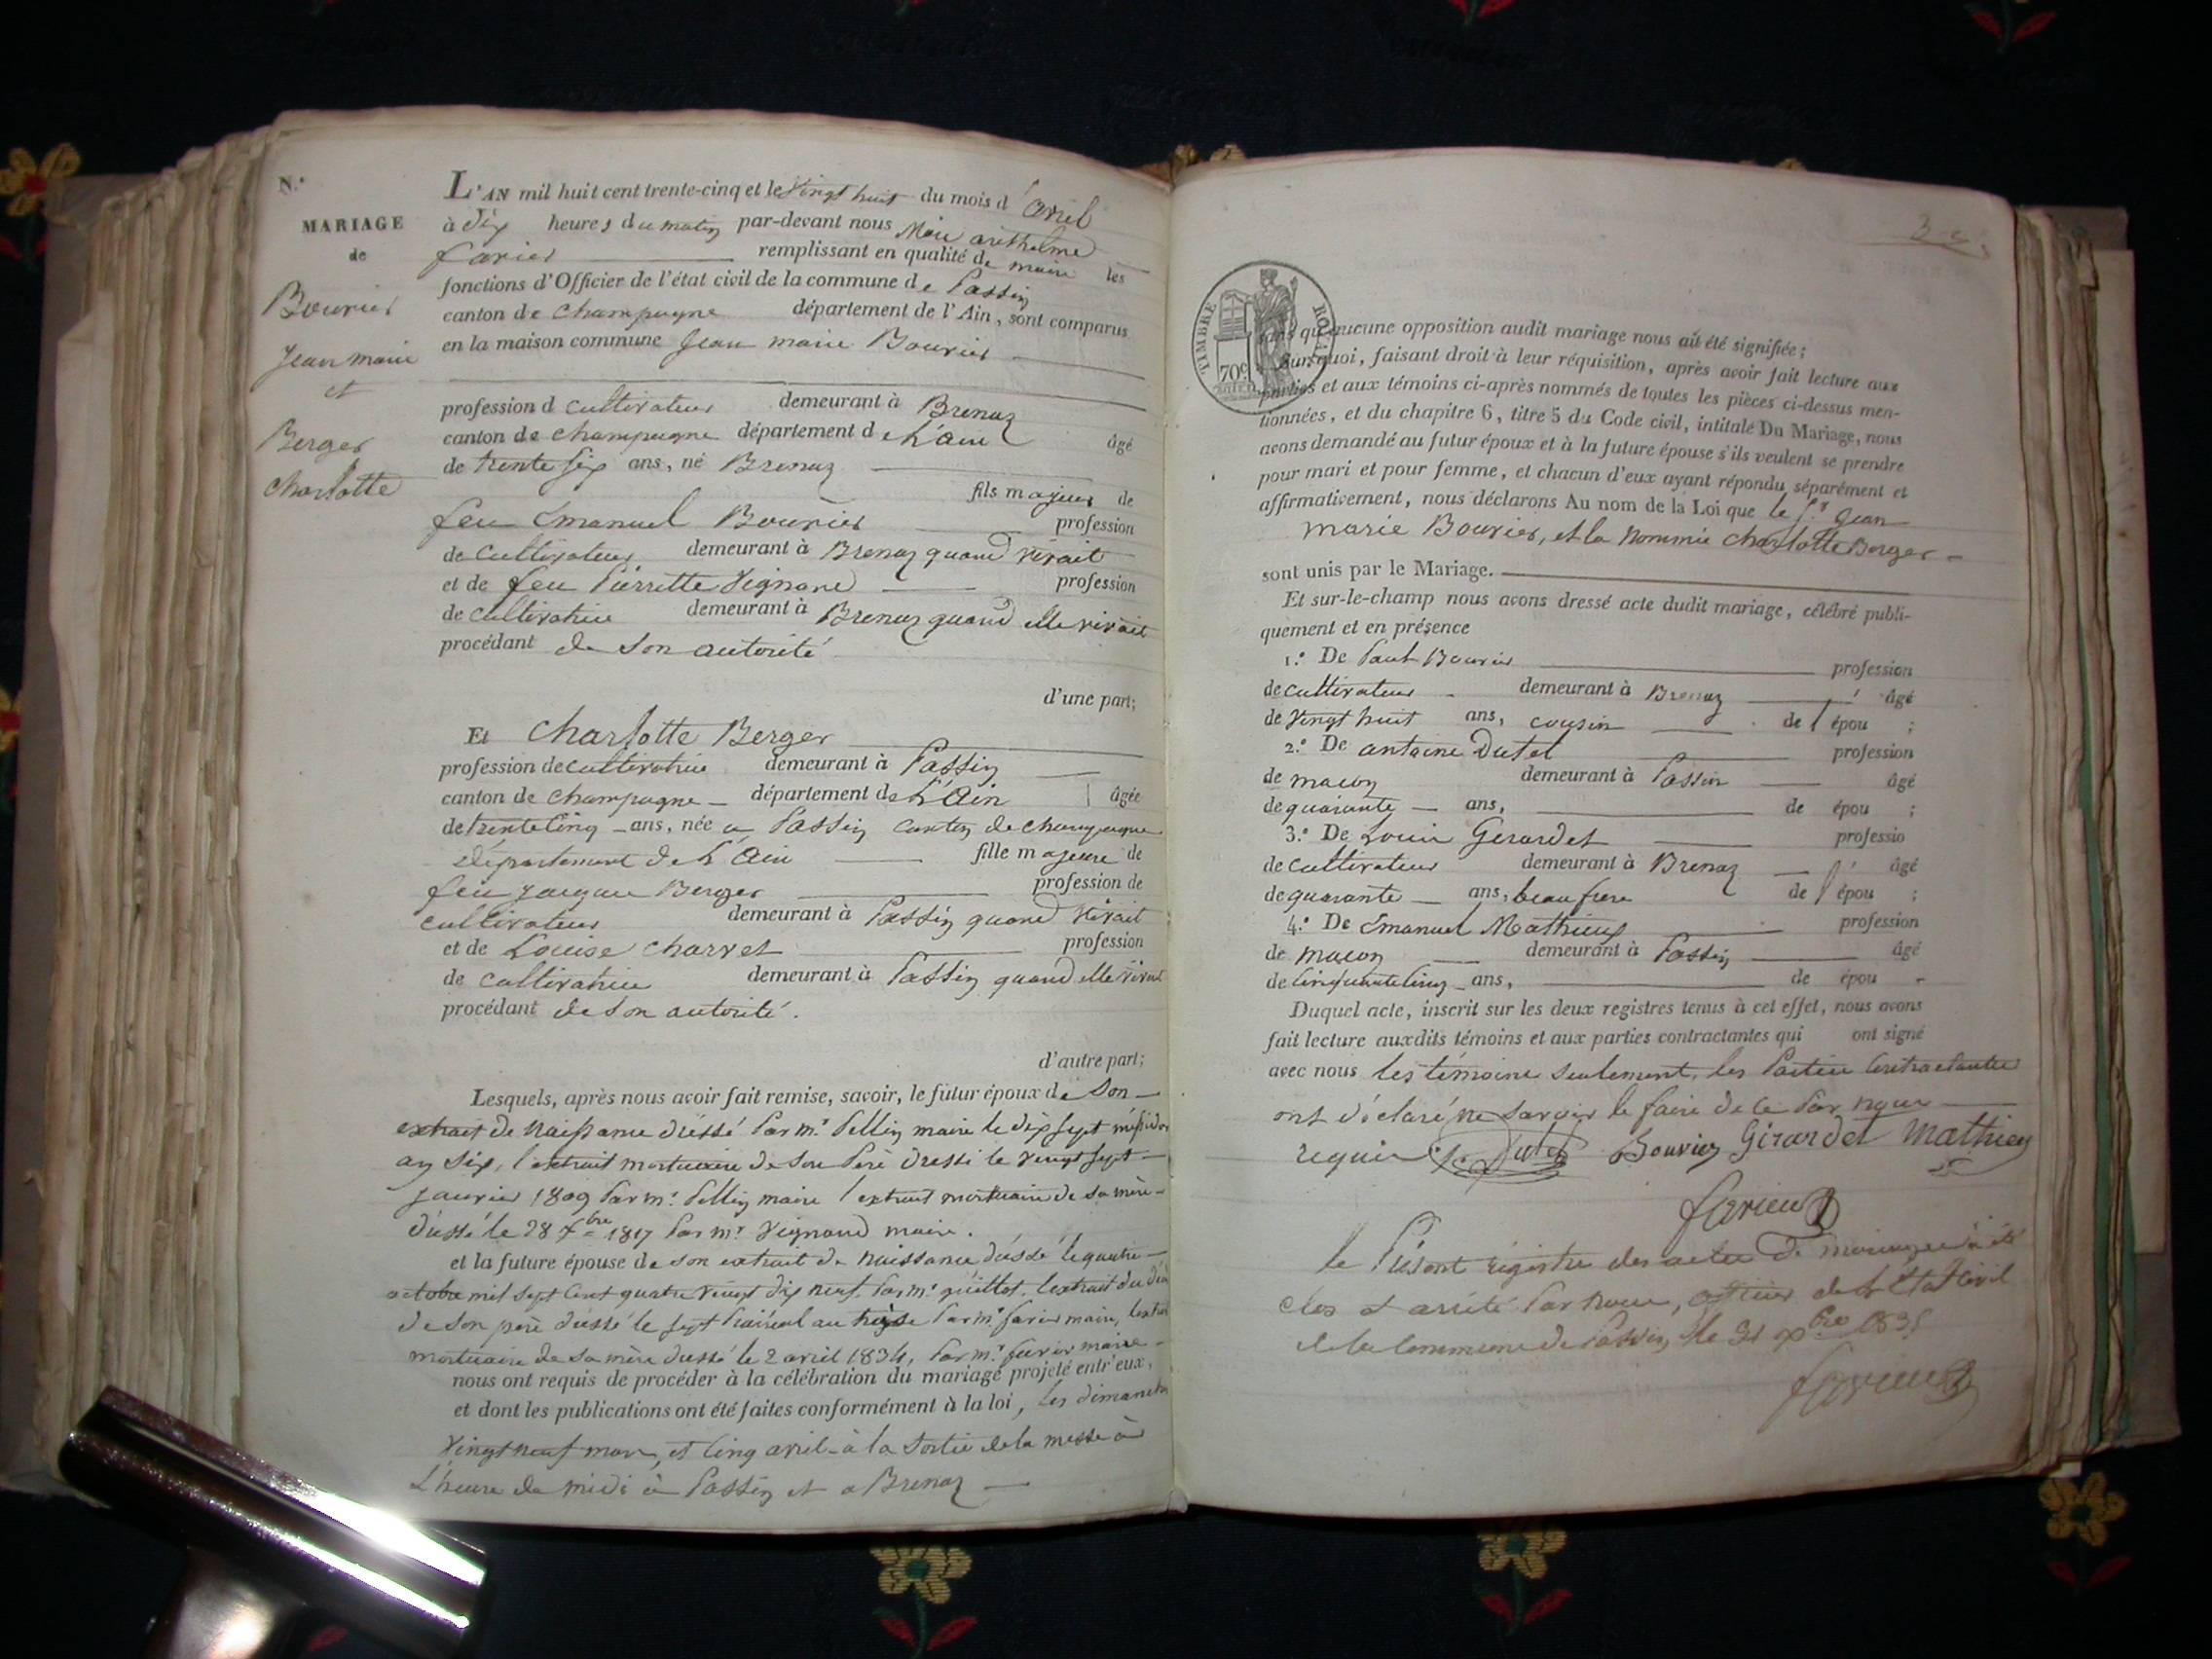 N.°
MARIAGE
de
Bouvier
Jean marie
et
Berger
Charlotte
L'AN mil huit cent trente-cinq et le vingt huit du mois d'avril
à dix heures du matin par-devant nous Marie anthelme
favier remplissant en qualité de maire les
fonctions d'Officier de l'état civil de la commune de Passin
canton de Champagne département de l'Ain, sont comparus
en la maison commune Jean marie Bouvier
profession d cultivateur demeurant à Brenaz
canton de champagne département de L'ain âgé
de trente six ans, né Brenaz
fils majeur de
feu Emanuel Bouvier profession
de cultivateur demeurant à Brenaz quand vivait
et de feu Pierrette Vignand profession
de cultivatrice demeurant à Brenaz quand elle vivait
procédant de son autorité
d'une part;
Et Charlotte Berger
profession de cultivatrice demeurant à Passin
canton de champagne département de L'Ain âgée
de trente cinq ans, née a Passin canton de champagne
département de L'Ain fille majeure de
feu Jacques Berger profession de
cultivateur demeurant à Passin quand vivait
et de Louise Charvet profession
de cultivatrice demeurant à Passin quand elle vivait
procédant de son autorité.
d'autre part;
Lesquels, après nous avoir fait remise, savoir, le futur époux de son
extrait de Naissance dressé Par mr. Pellin maire le dix sept messidor
an six, l'extrait mortuaire de son Pere dressé le vingt sept
janvier 1809 Par mr. Pellin maire l'extrait mortuaire de sa mère
dressé le 28 7bre 1817 Par mr Vignand maire.
et la future épouse de son extrait de Naissance dressé le quatre
octobre mil sept cent quatre vingt dix neuf Par mr. guillot. l'extrait du
de son père dressé le sept Prairéal an treize Par mr. favier maire,
mortuaire de sa mère dressé le 2 avril 1834, Par mr. favier maire
nous ont requis de procéder à la célébration du mariage projeté entr'eux,
et dont les publications ont été faites conformément à la loi, les dimanches
Vingt neuf mars, et cinq avril à la sortie de la messe à
L'heure de midi à Passin et a Brenaz
TIMBRE ROYAL
70c
sans qu'aucune opposition audit mariage nous ait été signifiée;
Sur quoi, faisant droit à leur réquisition, après avoir fait lecture aux
parties et aux témoins ci-après nommés de toutes les pièces ci-dessus men-
tionnées, et du chapitre 6, titre 5 du Code civil, intitulé Du Mariage, nous
avons demandé au futur époux et à la future épouse s'ils veulent se prendre
pour mari et pour femme, et chacun d'eux ayant répondu séparément et
affirmativement, nous déclarons Au nom de la Loi que le Sr. Jean
marie Bouvier, et la Nommée Charlotte Berger
sont unis par le Mariage.
Et sur-le-champ nous avons dressé acte dudit mariage, célébré publi-
quement et en présence
1.° De Paul Bouvier profession
de cultivateur demeurant à Brenaz âgé
de vingt huit ans, cousin de l'épou ;
2.° De antoine Dutel profession
de macon demeurant à Passin âgé
de quarante ans, de épou ;
3.° De Louis Gerardet professio
de cultivateur demeurant à Brenaz âgé
de quarante ans, beau frere de l'épou ;
4.° De Emanuel Mathieu profession
de macon demeurant à Passin âgé
de cinquante cinq ans, de épou
Duquel acte, inscrit sur les deux registres tenus à cet effet, nous avons
fait lecture auxdits témoins et aux parties contractantes qui ont signé
avec nous les témoins seulement, les Parties Contractantes
ont déclaré ne savoir le faire de ce Par nous
requis Dutel Bouvier Girardet Mathieu
favier
le Présent registre des actes de mariages à été
clos et arrêté Par nous, officier de L'Etat Civil
de la Commune de Passin, le 31 xbre 1835
favier